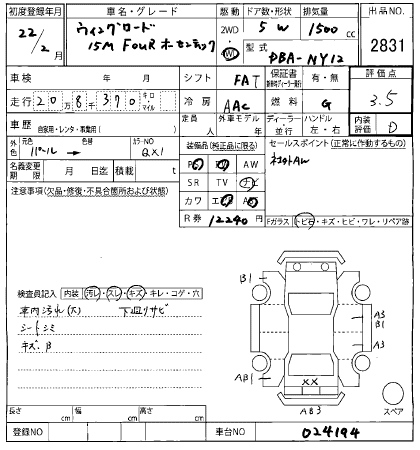 初度登録年月
22/2月
車名・グレード
ウィングロード
15M FourR ホーセンテック
駆動
2WD
4WD
ドア数・形状
5 W
排気量
1500 cc
型式
DBA-NY12
出品NO.
2831
車検 年 月
シフト FAT
保証書 有・無
評価点
3.5
走行 20万8千370 キロ・マイル
冷房 AAC
燃料 G
車歴 自家用・レンタ・事業用( )
定員 人
外車モデル 年
ディーラー・並行
ハンドル 左・右
内装評価 D
外色 元色 パール→ 色替
カラーNO QX1
装備品(純正品に限る)
PS PW AW
SR TV ナビ
カワ エアB AB
R券 12240円
セールスポイント(正常に作動するもの)
社外AW
名義変更期限 月 日迄
積載 t
注意事項(欠品・修復・不具合箇所および状態)
Fガラス(トビ石・キズ・ヒビ・ワレ・リペア跡)
検査員記入 内装(汚レ・スレ・キズ・キレ・コゲ・穴)
車内汚れ(大) 下廻りサビ
シートシミ
キズ.B
B1
A3
B1
A3
AB1
XX
AB3
スペア
長さ cm
幅 cm
高さ cm
登録NO
車台NO 024194